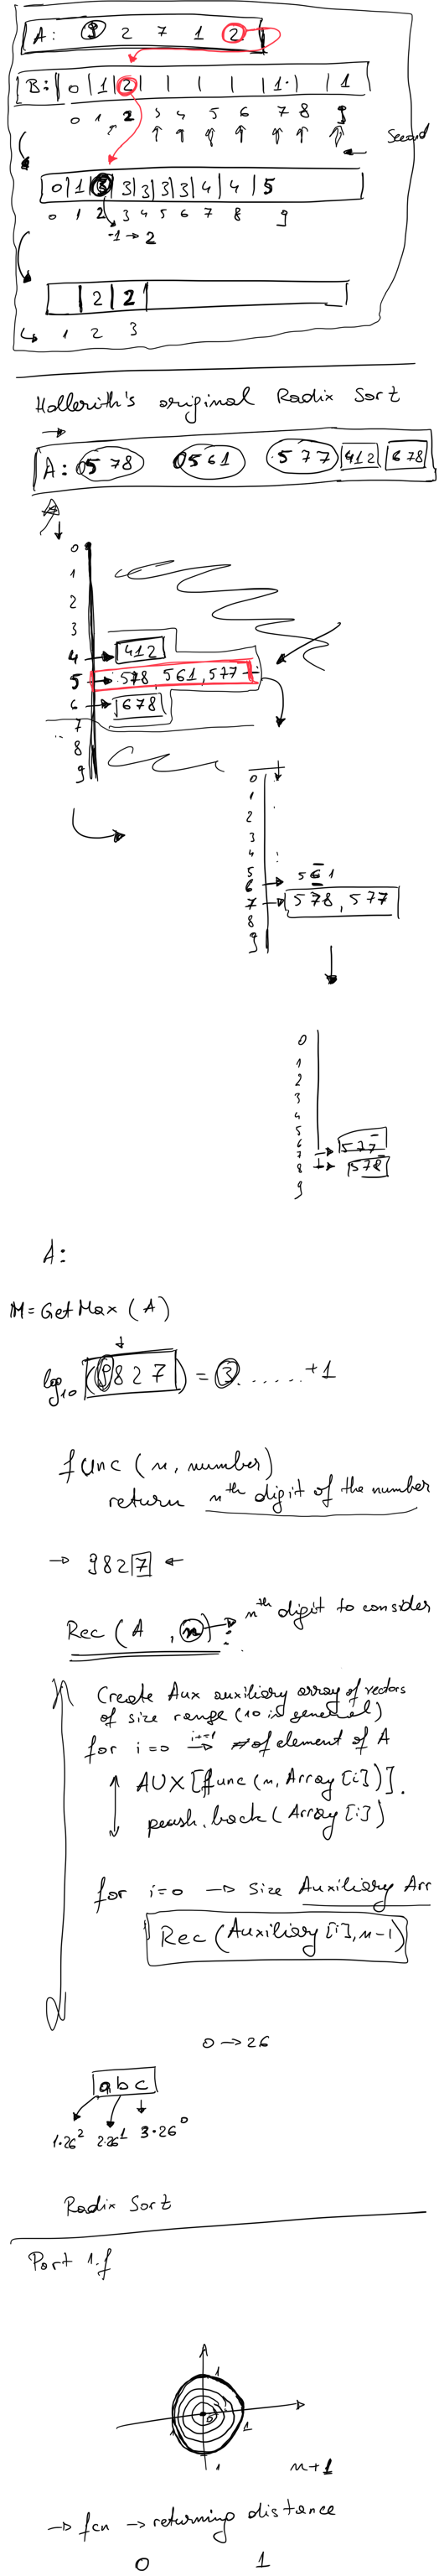 A: 9 2 7 1 2
B: 0 1 2 1 1
0 1 2 3 4 5 6 7 8 9
Second
0 1 3 3 3 3 3 4 4 5
0 1 2 3 4 5 6 7 8 9
-1 → 2
2 2
1 2 3
Hollerith's original Radix Sort
A: 0578 0561 577 412 678
0
1
2
3
4 → 412
5 → 578, 561, 577
6 → 678
7
8
9
0
1
2
3
4
5
6 → 561
7 → 578, 577
8
9
0
1
2
3
4
5
6
7 → 577
8 → 578
9
A:
M = GetMax (A)
log10 (9827) = 3 ...... +1
func (n, number)
return nth digit of the number
→ 9827 ←
Rec (A , n) → nth digit to consider
Create Aux auxiliary array of vectors
of size range (10 in general)
for i=0 i+=1 → # of element of A
AUX [func (n, Array [i])].
push.back (Array [i])
for i=0 → Size Auxiliary Arr
Rec (Auxiliary [i], n-1)
0 → 26
abc
1·26² 2·26¹ 3·26⁰
Radix Sort
Part 1.f
1
0
1 1
1
n+1
→ fcn → returning distance
0 1